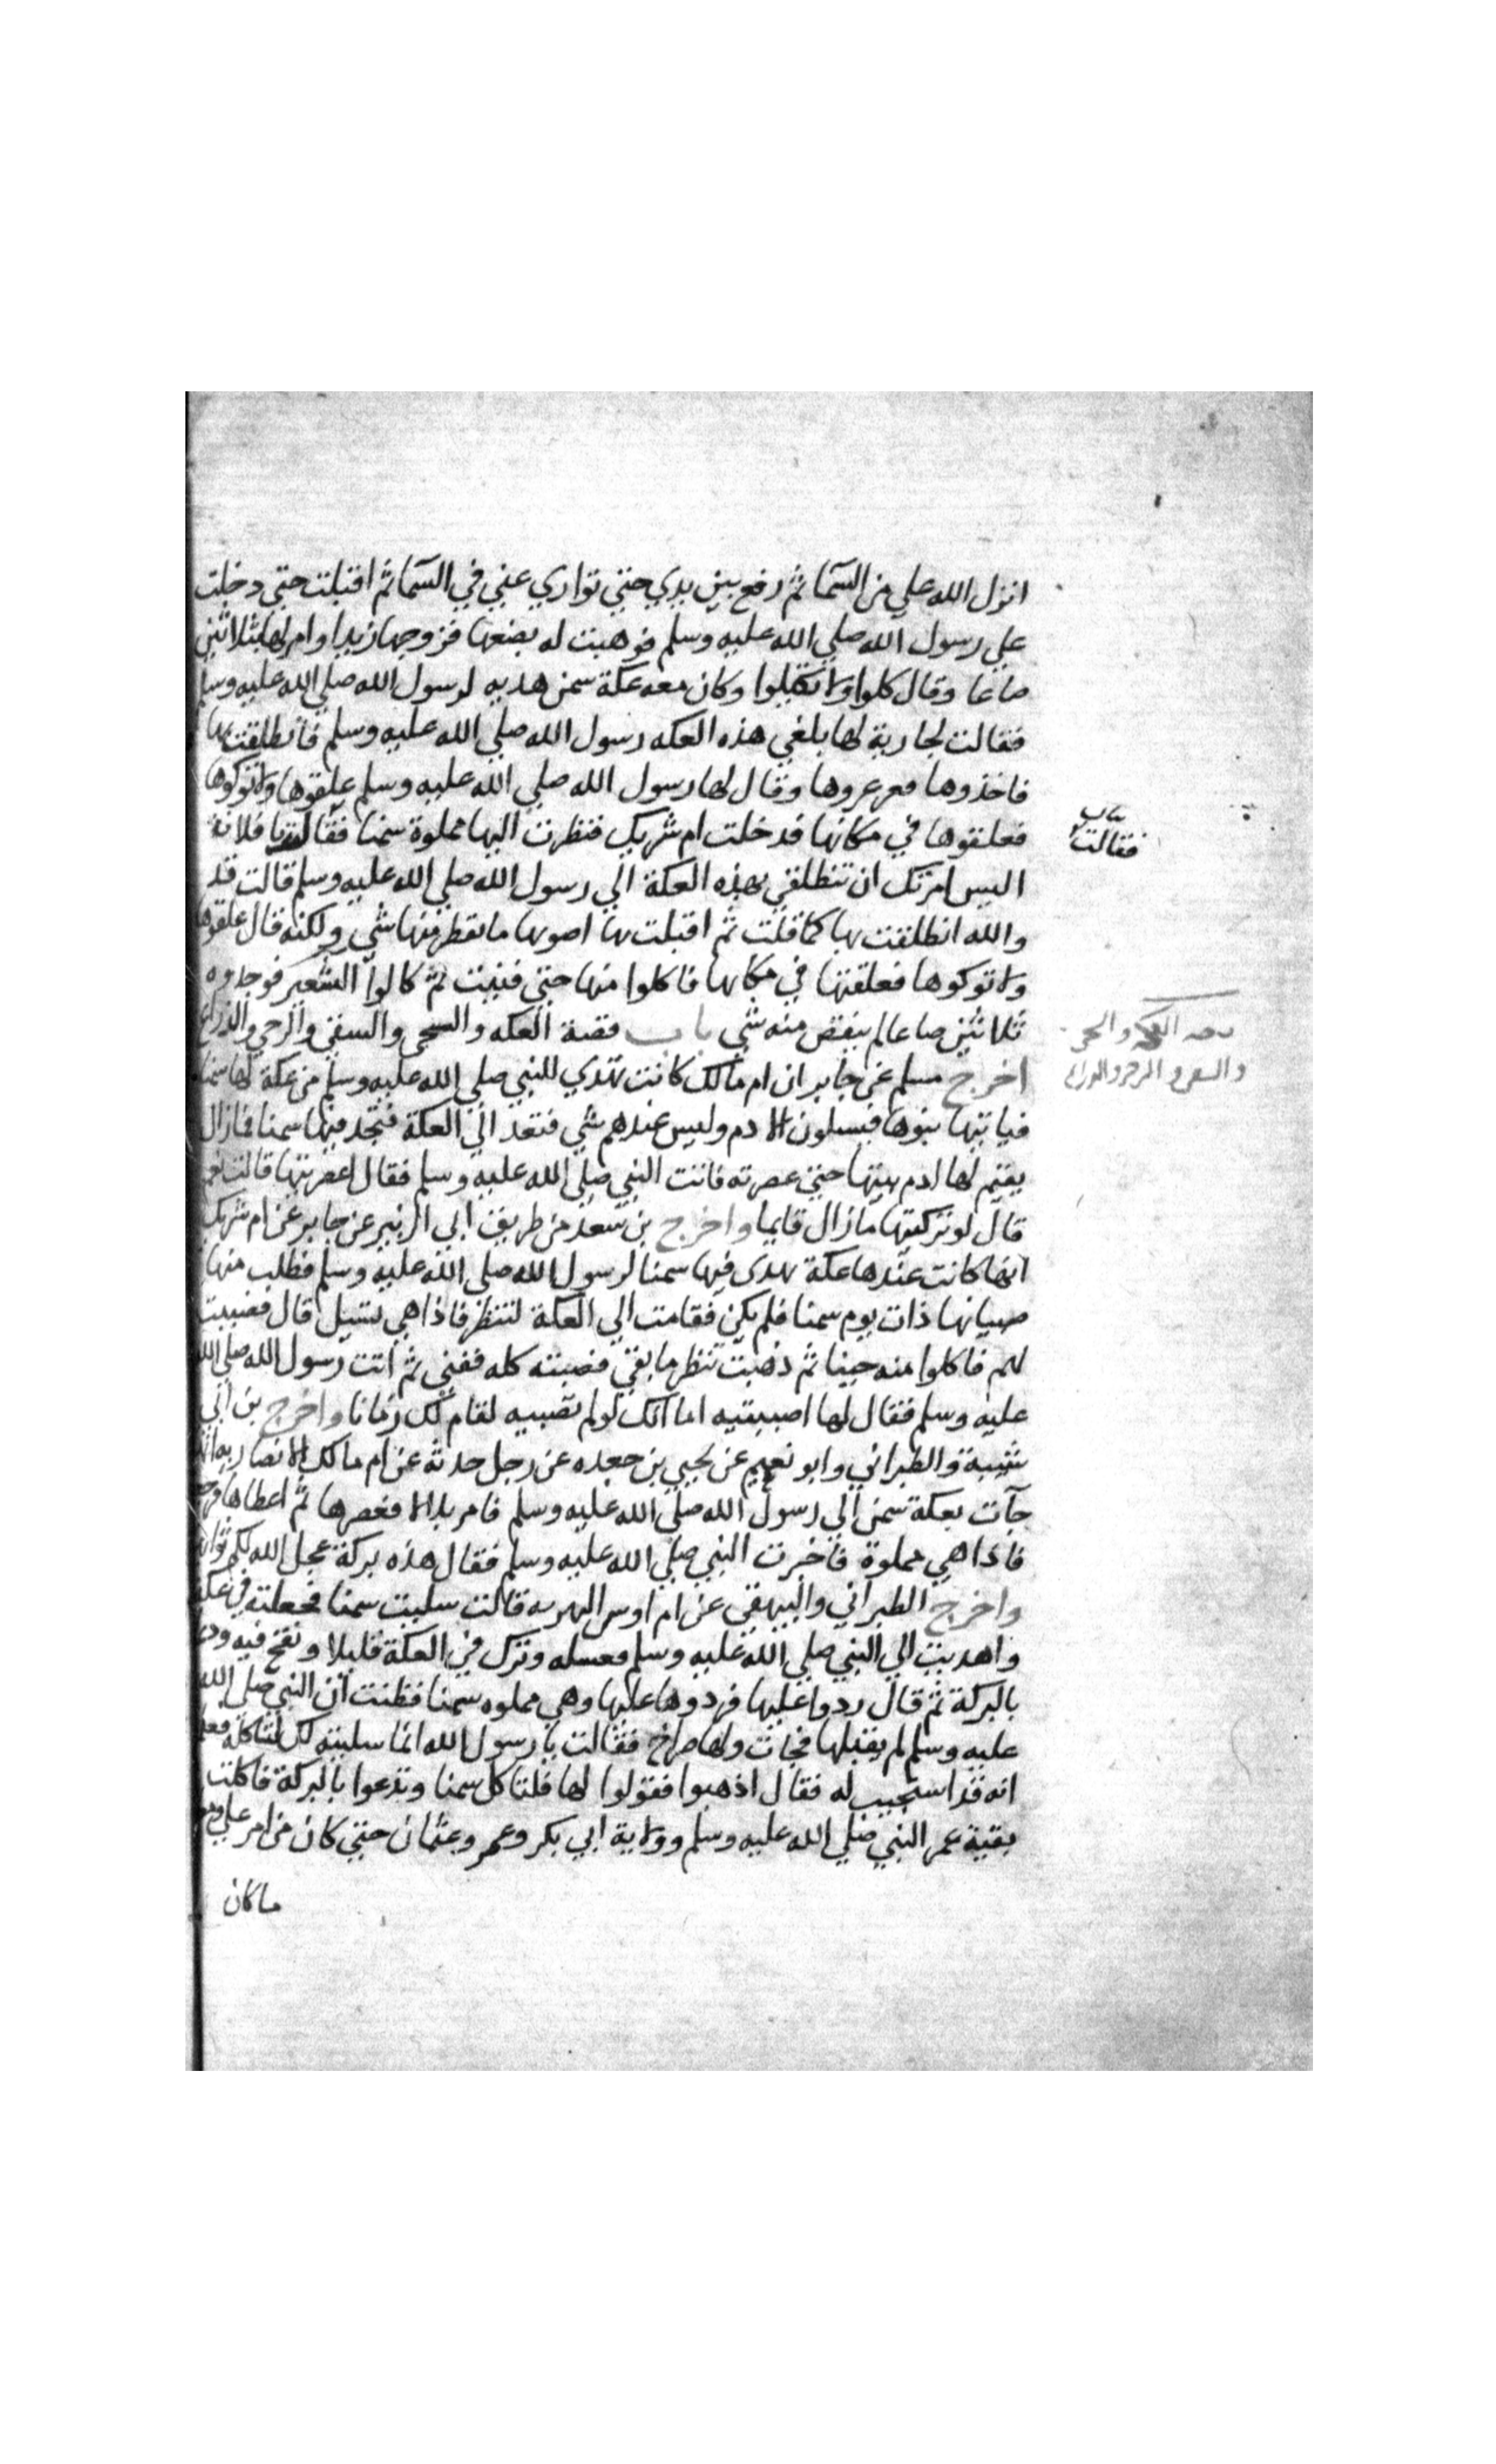 انزل الله علي من السما ثم رفع بين يدي حتي تواري عني في السما ثم اقبلت حتي دخلت
علي رسول الله صلي الله عليه وسلم فوهبت له بضعها فزوجها زيدا وامر لها بثلاثين
صاعا وقال كلوا ولا تكيلوا وكان معه عكة سمن هديه لرسول الله صلي الله عليه وسلم
فقالت لجارية لها بلغي هذه العكه رسول الله صلي الله عليه وسلم فانطلقت بها
فاخذوها ففرغوها وقال لها رسول الله صلي الله عليه وسلم علقوها ولا توكوها
فعلقوها في مكانها فدخلت ام شريك فنظرت اليها مملوة سمنا فقالت يا فلانة
فقالت
اليس امرتك ان تنطلقي بهذه العكة الي رسول الله صلي الله عليه وسلم قالت قد
والله انطلقت بها كما قلت ثم اقبلت بها اصوبها ما يقطر منها شي ولكنه قال علقوها
ولا توكوها فعلقتها في مكانها فاكلوا منها حتي فنيت ثم كالوا الشعير فوجدوه
ثلاثين صاعا لم ينقص منه شي باب قصة العكه والنحي والسقي والرحي والذراع
قصه العكه والنحي
والسقي والرحي والذراع
اخرج مسلم عن جابر ان ام مالك كانت تهدي للنبي صلي الله عليه وسلم من عكة لها سمنا
فياتيها بنوها فيسلون الادم وليس عندهم شي فتعد الي العكة فتجد فيها سمنا فمازال
يقيم لها ادم بيتها حتي عصرته فاتت النبي صلي الله عليه وسلم فقال اعصرتيها قالت نعم
قال لو تركتيها مازال قايما واخرج بن سعد من طريق ابي الزبير عن جابر عن ام شريك
انها كانت عندها عكة تهدي فيها سمنا لرسول الله صلي الله عليه وسلم فطلب منها
صبيانها ذات يوم سمنا فلم يكن فقامت الي العكة لتنظر فاذا هي تسيل قال فصبت
لهم فاكلوا منه حينا ثم ذهبت تنظر ما بقي فصبته كله ففني ثم اتت رسول الله صلي الله
عليه وسلم فقال لها اصببتيه اما انك لو لم تصبيه لقام لك زمانا واخرج بن ابي
شيبة والطبراني وابو نعيم عن يحيي بن جعده عن رجل حدثه عن ام مالك الانصاريه انها
جآت بعكة سمن الي رسول الله صلي الله عليه وسلم فامر بلالا فعصرها ثم اعطاها فرجعت
فاذا هي مملوة فاخبرت النبي صلي الله عليه وسلم فقال هذه بركة عجل الله لكم ثوابها
واخرج الطبراني والبيهقي عن ام اوس البهزيه قالت سليت سمنا فجعلته في عكة
واهديت الي النبي صلي الله عليه وسلم فعسله وترك في العكة قليلا ونفخ فيه ودعا
بالبركة ثم قال ردوا عليها فردوها عليها وهي مملوه سمنا فظنت ان النبي صلي الله
عليه وسلم لم يقبلها فجات ولها صراخ فقالت يا رسول الله انما سليته لك لتاكله فعلم
انه قد استجيب له فقال اذهبوا فقولوا لها فلتاكل سمنا وتدعوا بالبركة فاكلت
بقية عمر النبي صلي الله عليه وسلم وولاية ابي بكر وعمر وعثمان حتي كان من امر علي ومعوية
ماكان